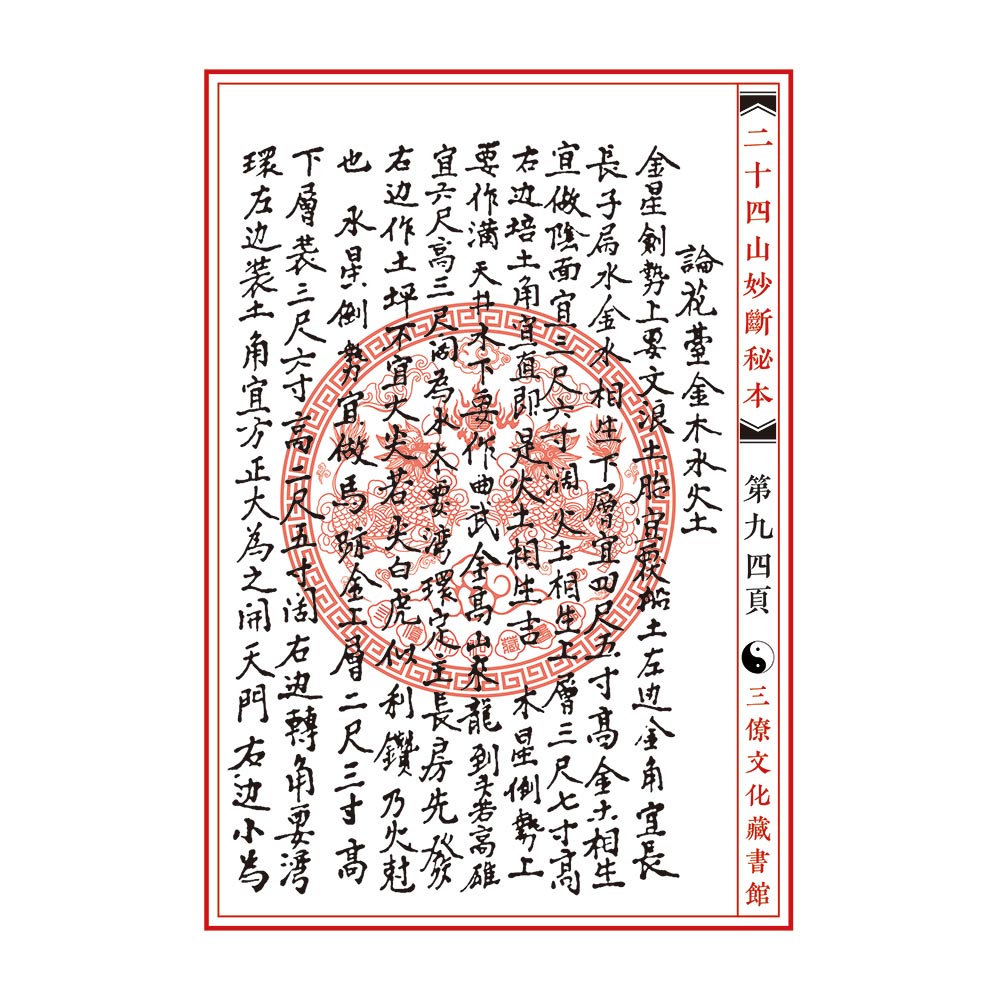 二十四山妙斷秘本
第九四頁
三僚文化藏書館
論花臺金木水火土
金星劍勢上要文浪土胎宜覆船土左边金角宜長
長子局水金水相生下層宜四尺五寸高金土相生
宜做陰面宜三尺六寸濶火土相生上層三尺七寸高
右边培土角宜直即是火土相生吉 木星倒勢上
要作满天井水下要作曲武金高山來龍到头若高雄
宜六尺高三尺阔為水木要湾環定主長房先發
右边作土坪不宜大尖若尖白虎似利鑽乃火尅
也 水星倒勢宜做馬跡金上層二尺三寸高
下層装三尺六寸高二尺五寸阔右边轉角要湾
環左边装土角宜方正大為之開天門右边小為